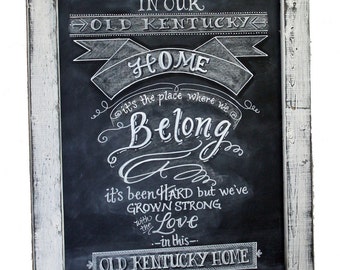 IN OUR
OLD KENTUCKY
HOME
it's the place where we
Belong
it's been HARD but we've
GROWN STRONG
with the Love
-in this-
OLD KENTUCKY HOME